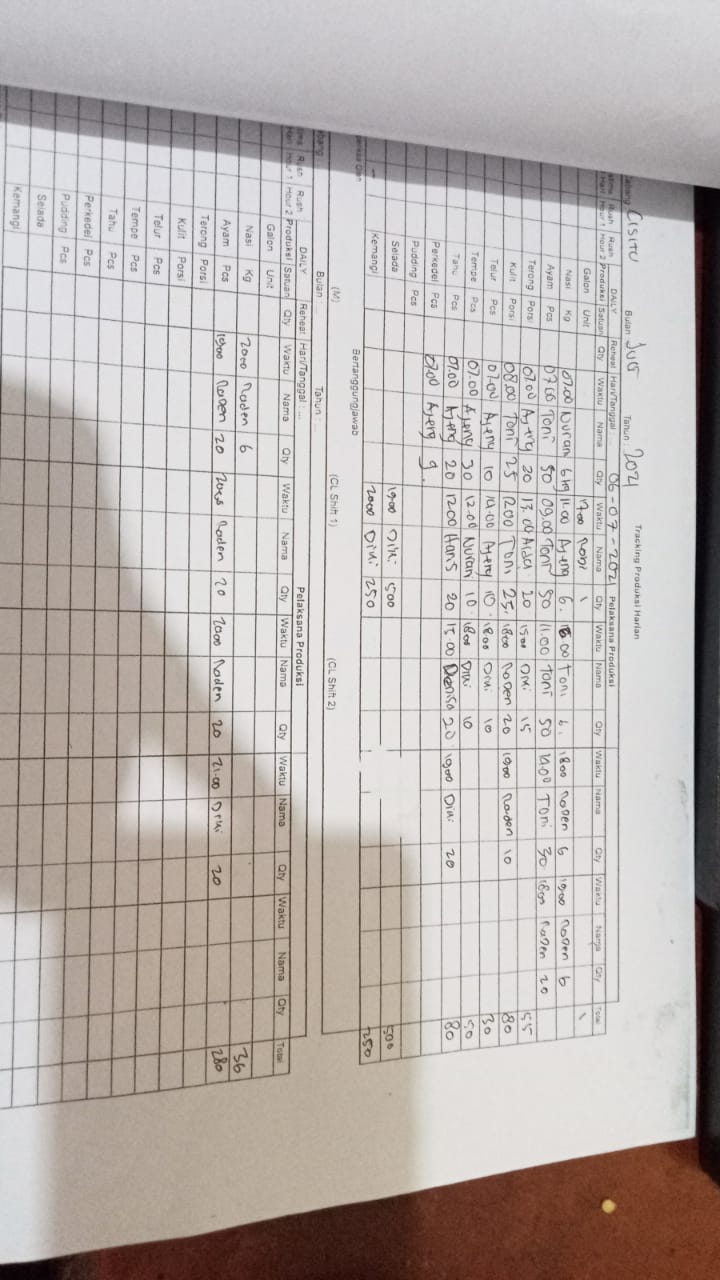 Cabang Cisitu Bulan Juli Tahun : 2021 Tracking Produksi Harian
Rush Rush DAILY Reheat Hari/Tanggal : 06-07-2021 Pelaksana Produksi
Hour 1 Hour 2 Produksi Satuan Qty Waktu Nama Qty Waktu Nama Qty Waktu Nama Qty Waktu Nama Qty Waktu Nama Qty Total
Galon Unit 1700 Robi 1 1
Nasi Kg 07.00 Nuran 6 kg 11.00 Ajeng 6. 15.00 Toni 6. 1800 Raden 6 1900 Raden 6
Ayam Pcs 07.00 Toni 50 09.00 Toni 50 11.00 Toni 50 14.00 Toni 30 1800 Raden 20
Terong Porsi 07.00 Ajeng 20 13.00 Alda 20 1500 Diki 15 55
Kulit Porsi 08.00 Toni 25 1200 Toni 25. 1800 Raden 20 1900 Raden 10 80
Telur Pcs 07.00 Ajeng 10 14.00 Ajeng 10. 1800 Diki 10 30
Tempe Pcs 07.00 Ajeng 30 12.00 Nuran 10. 1800 Diki 10 50
Tahu Pcs 07.00 Ajeng 20 1200 Hans 20 15.00 Denisa 20. 1900 Diki 20 80
Perkedel Pcs 07.00 Ajeng 9.
Pudding Pcs
Selada 1900 Diki 500 500
Kemangi 2000 Diki 250 250
Bertanggungjawab
(M) (CL Shift 1) (CL Shift 2)
Bulan : Tahun :
Rush Rush DAILY Reheat Hari/Tanggal : Pelaksana Produksi
Hour 1 Hour 2 Produksi Satuan Qty Waktu Nama Qty Waktu Nama Qty Waktu Nama Qty Waktu Nama Qty Waktu Nama Qty Total
Galon Unit
Nasi Kg 2000 Raden 6 36
Ayam Pcs 1900 Raden 20 2000 Raden 20 2000 Raden 20 21.00 Diki 20 280
Terong Porsi
Kulit Porsi
Telur Pcs
Tempe Pcs
Tahu Pcs
Perkedel Pcs
Pudding Pcs
Selada
Kemangi